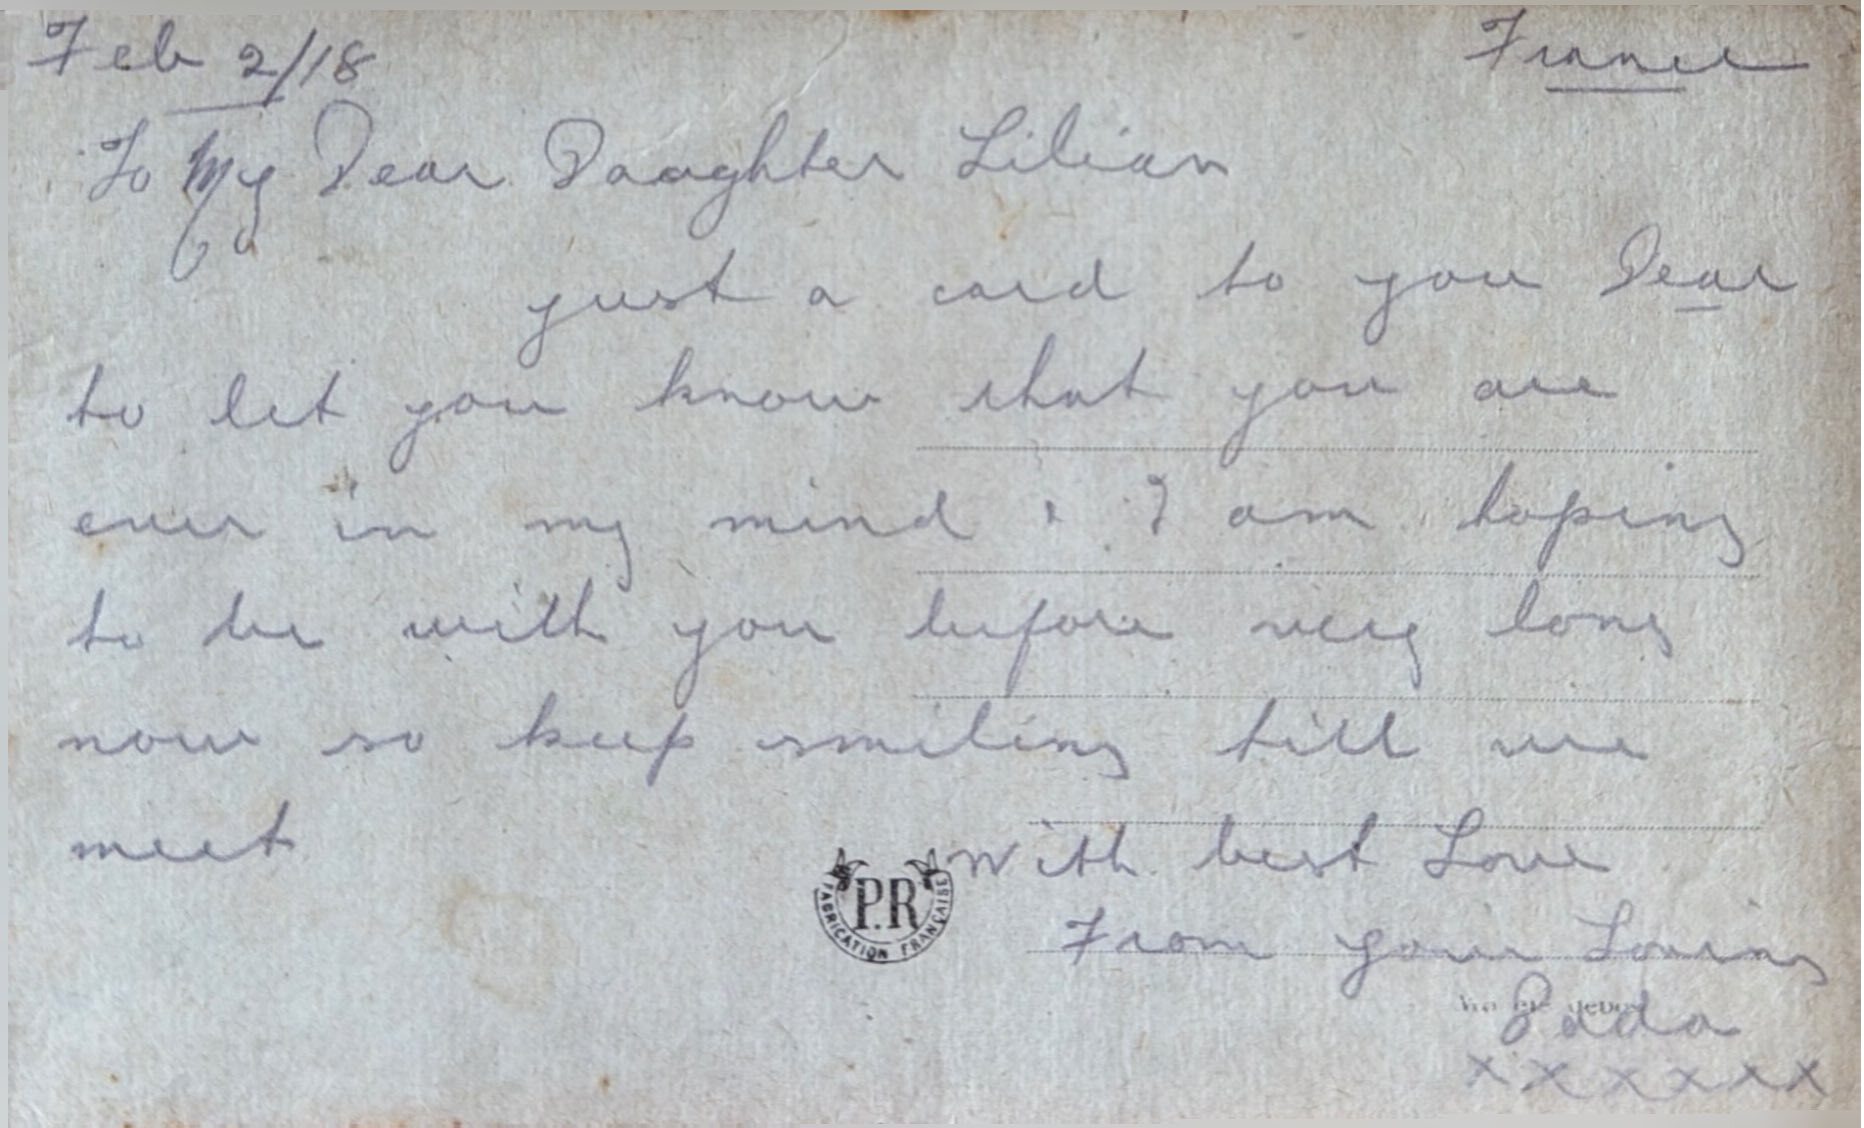 Feb 2/18 France
To My Dear Daughter Lilian
just a card to you Dear
to let you know that you are
ever in my mind & I am hoping
to be with you before very long
now so keep smiling till we
meet
With best Love
P.R
FABRICATION FRANÇAISE
From your Loving
Dada
x x x x x x